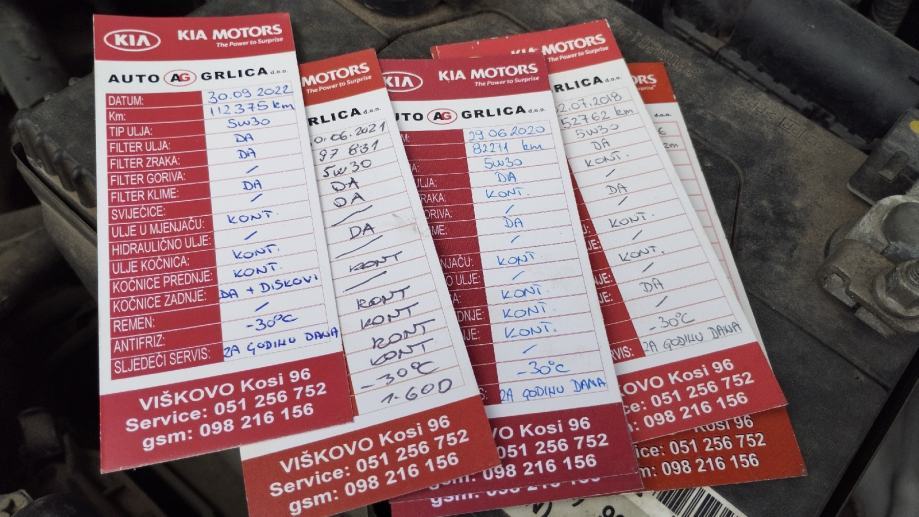 KIA KIA MOTORS
The Power to Surprise
AUTO AG GRLICA d.o.o.
DATUM: 30.09 2022
Km: 112375 km
TIP ULJA: 5W30
FILTER ULJA: DA
FILTER ZRAKA: DA
FILTER GORIVA: /
FILTER KLIME: DA
SVIJEĆICE: /
ULJE U MJENJAČU: KONT.
HIDRAULIČNO ULJE: /
ULJE KOČNICA: KONT.
KOČNICE PREDNJE: KONT.
KOČNICE ZADNJE: DA + DISKOVI
REMEN: /
ANTIFRIZ: -30°C
SLJEDEĆI SERVIS: ZA GODINU DANA
VIŠKOVO Kosi 96
Service: 051 256 752
gsm: 098 216 156
MOTORS
The Power to Surprise
RLICA d.o.o.
.06.2021
97 831
5W30
DA
DA
/
DA
/
KONT
/
KONT
KONT
KONT
KONT
-30°C
1.GOD
VIŠKOVO Kosi 96
Service: 051 256 752
gsm: 098 216 156
KIA KIA MOTORS
The Power to Surprise
UTO AG GRLICA d.o.o.
M: 29.06.2020
82211 km
5W30
ULJA: DA
RAKA: KONT.
ORIVA: /
ME: DA
/
NJAČU: KONT
O ULJE: /
A: KONT.
DNJE: KONT.
JE: KONT.
/
-30°C
S: ZA GODINU DANA
VIŠKOVO Kosi 96
Service: 051 256 752
gsm: 098 216 156
KIA MOTORS
The Power to Surprise
RLICA d.o.o.
2.07.2018
52762 km
5W30
DA
KONT.
/
DA
/
KONT.
/
KONT.
/
DA
/
-30°C
RVIS: ZA GODINU DANA
VIŠKOVO Kosi 96
Service: 051 256 752
gsm: 098 216 156
RS
Kosi 96
51 256 752
gsm: 098 216 156